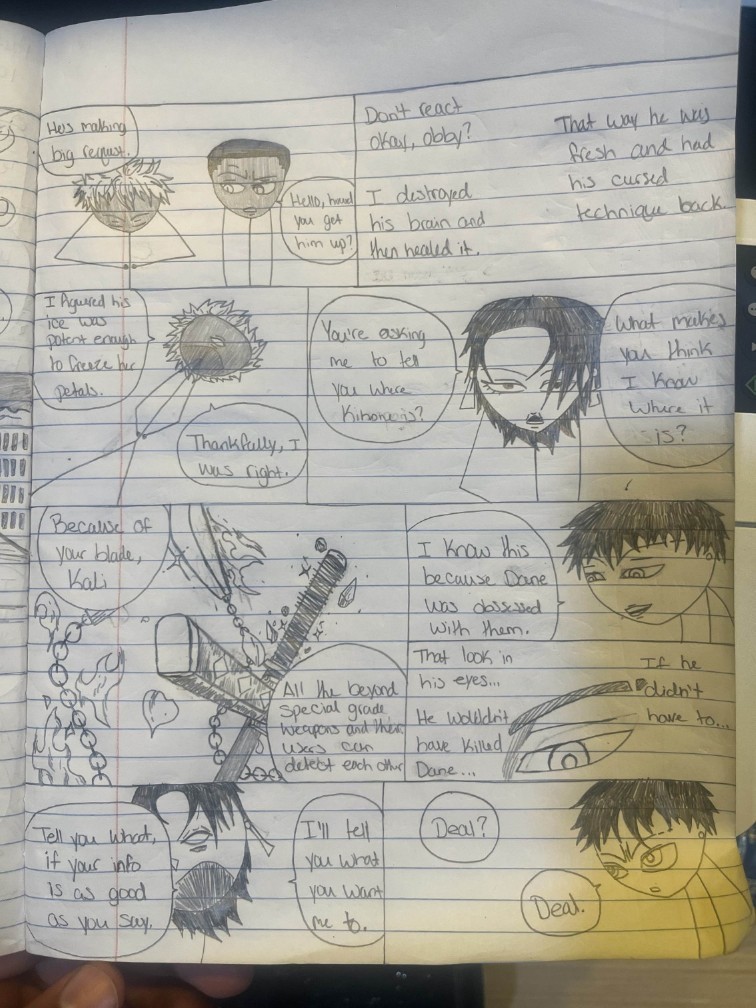 He's making
big request.
Hello, how'd
you get
him up?
Don't react
okay, obby?
I destroyed
his brain and
then healed it.
That way he was
fresh and had
his cursed
technique back
I figured his
ice was
potent enough
to freeze her
petals.
Thankfully, I
was right.
You're asking
me to tell
you where
is?
What makes
you think
I know
where it
is?
Because of
your blade,
Kali
All the beyond
special grade
weapons and their
users can
detect each other
I know this
because Dane
was obsessed
with them.
That look in
his eyes...
He wouldn't
have killed
Dane...
If he
didn't
have to...
Tell you what,
if your info
is as good
as you say.
I'll tell
you what
you want
me to.
Deal?
Deal.